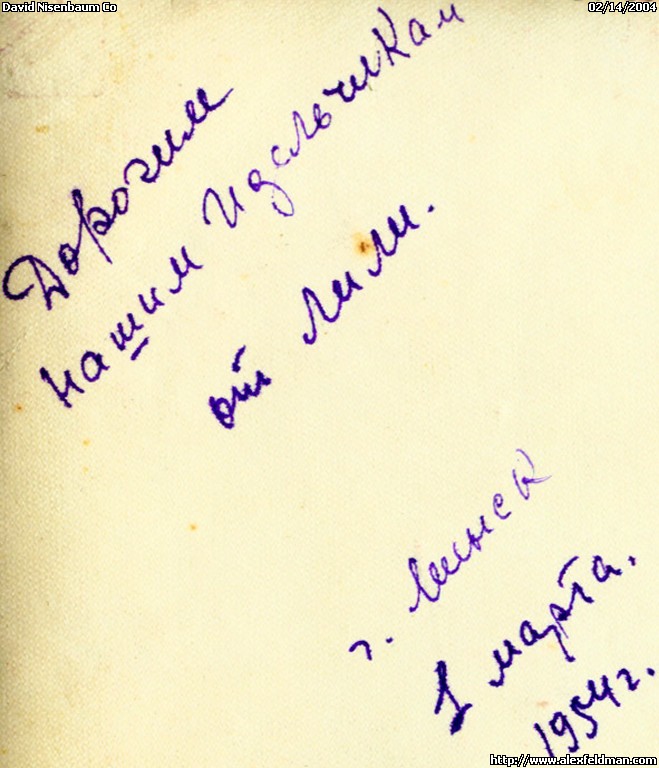 David Nisenbaum Co
02/14/2004
Дорогим
нашим Идельчикам
от Лили.
г. Минск
1 марта.
1954 г.
http://www.alexfeldman.com